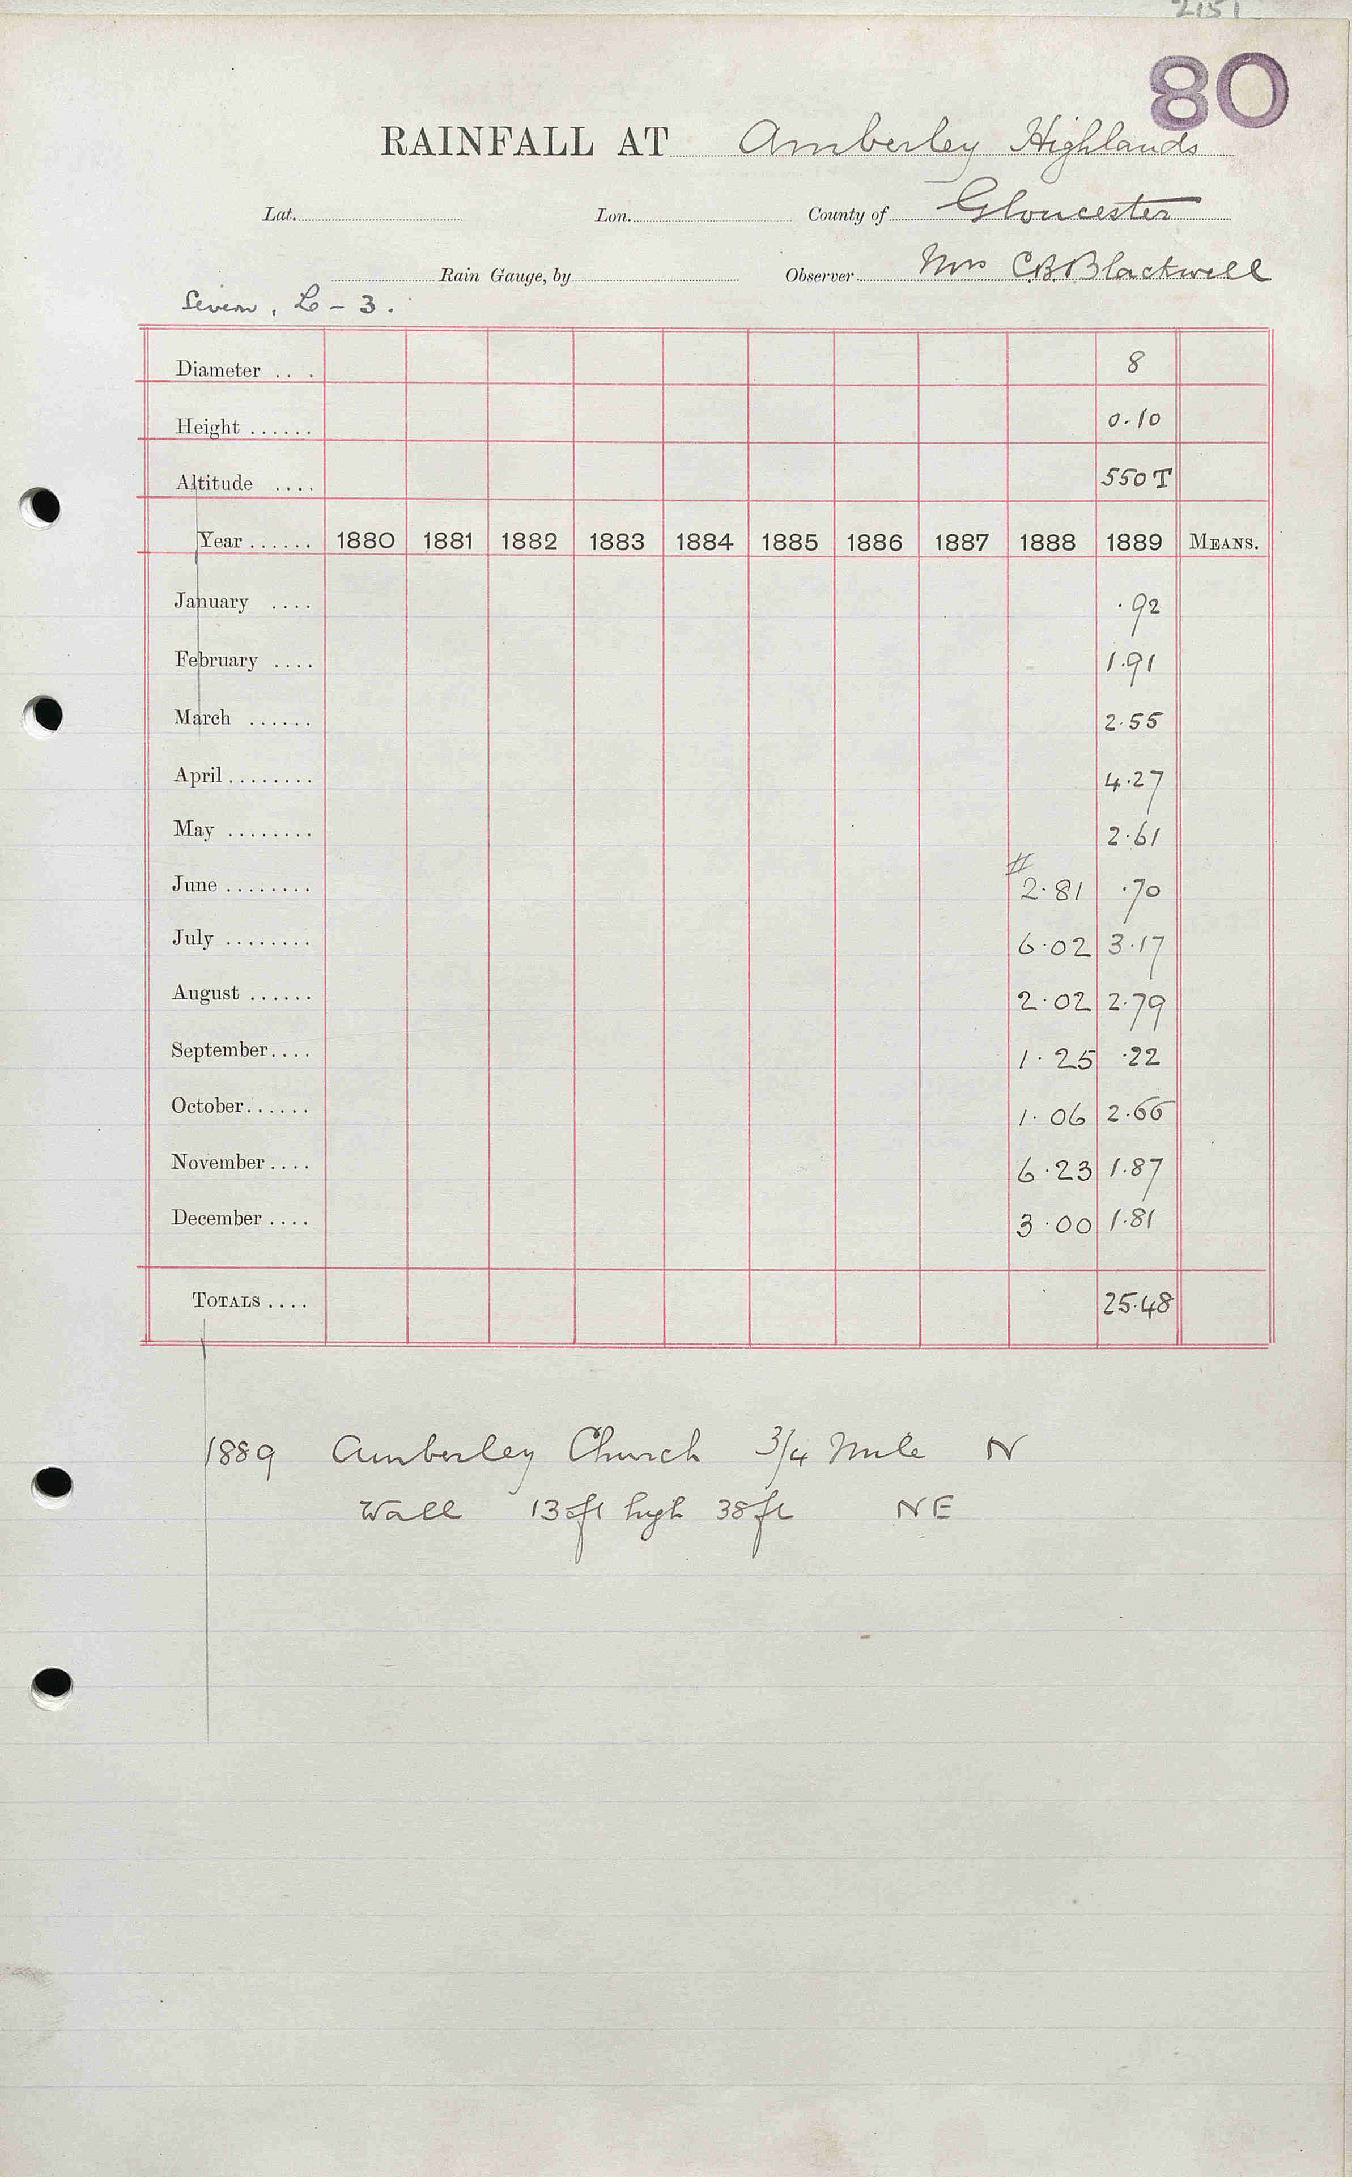 2151
80
RAINFALL AT Amberley Highlands
Lat. Lon. County of Gloucester
Rain Gauge, by Observer Mrs C.B. Blackwell
Severn, L - 3.
Diameter ... 8
Height ...... 0.10
Altitude .... 550 T
Year ...... 1880 1881 1882 1883 1884 1885 1886 1887 1888 1889 MEANS.
January .... .92
February .... 1.91
March ...... 2.55
April ........ 4.27
May ........ 2.61
June ........ # 2.81 .70
July ........ 6.02 3.17
August ...... 2.02 2.79
September .... 1.25 .22
October ...... 1.06 2.66
November .... 6.23 1.87
December .... 3.00 1.81
TOTALS .... 25.48
1889 Amberley Church 3/4 Mile N
Wall 13 ft high 38 ft NE